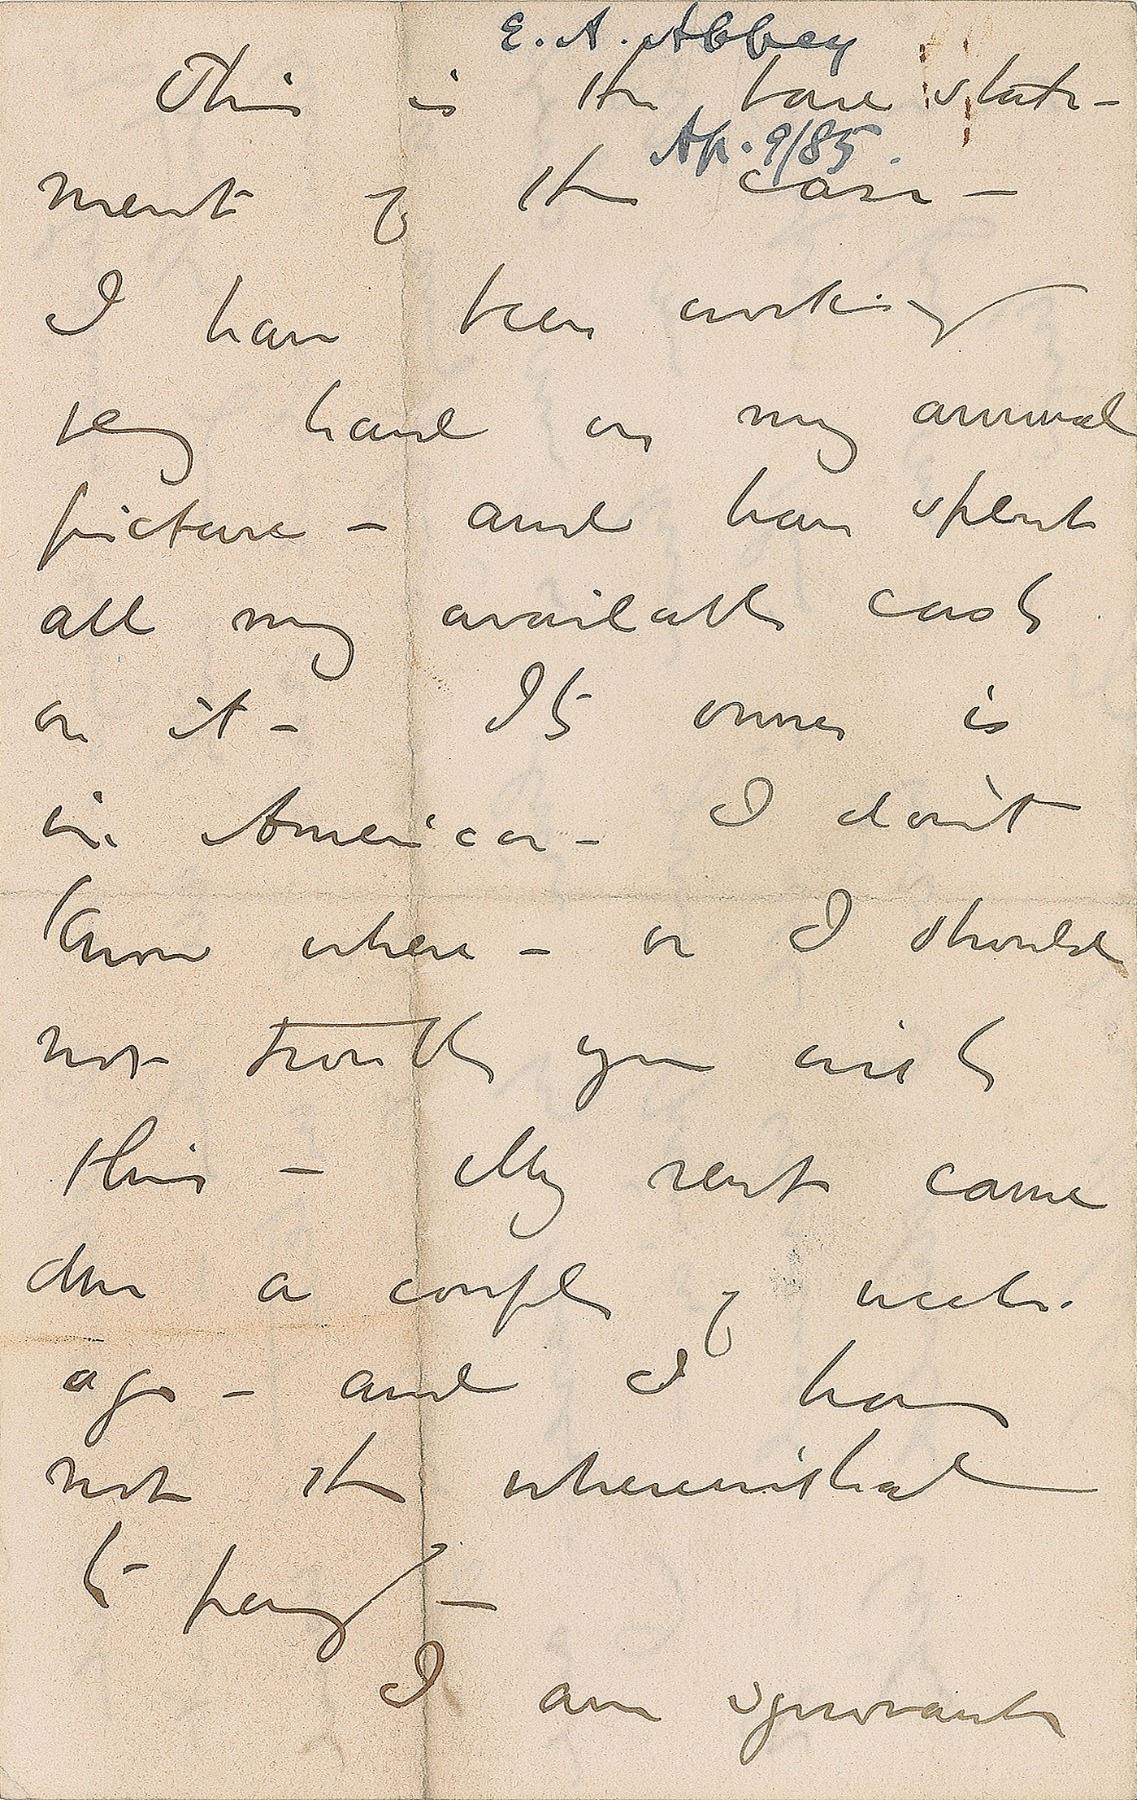 E. A. Abbey
This is the bare state-
Ap. 9/85.
ment of the case -
I have been working
very hard on my annual
picture - and have spent
all my available cash
on it - Its owner is
in America - I don't
know where - or I should
not trouble you with
this - My rent came
due a couple of weeks
ago - and I have
not the wherewithal
to pay -
I am ignorant